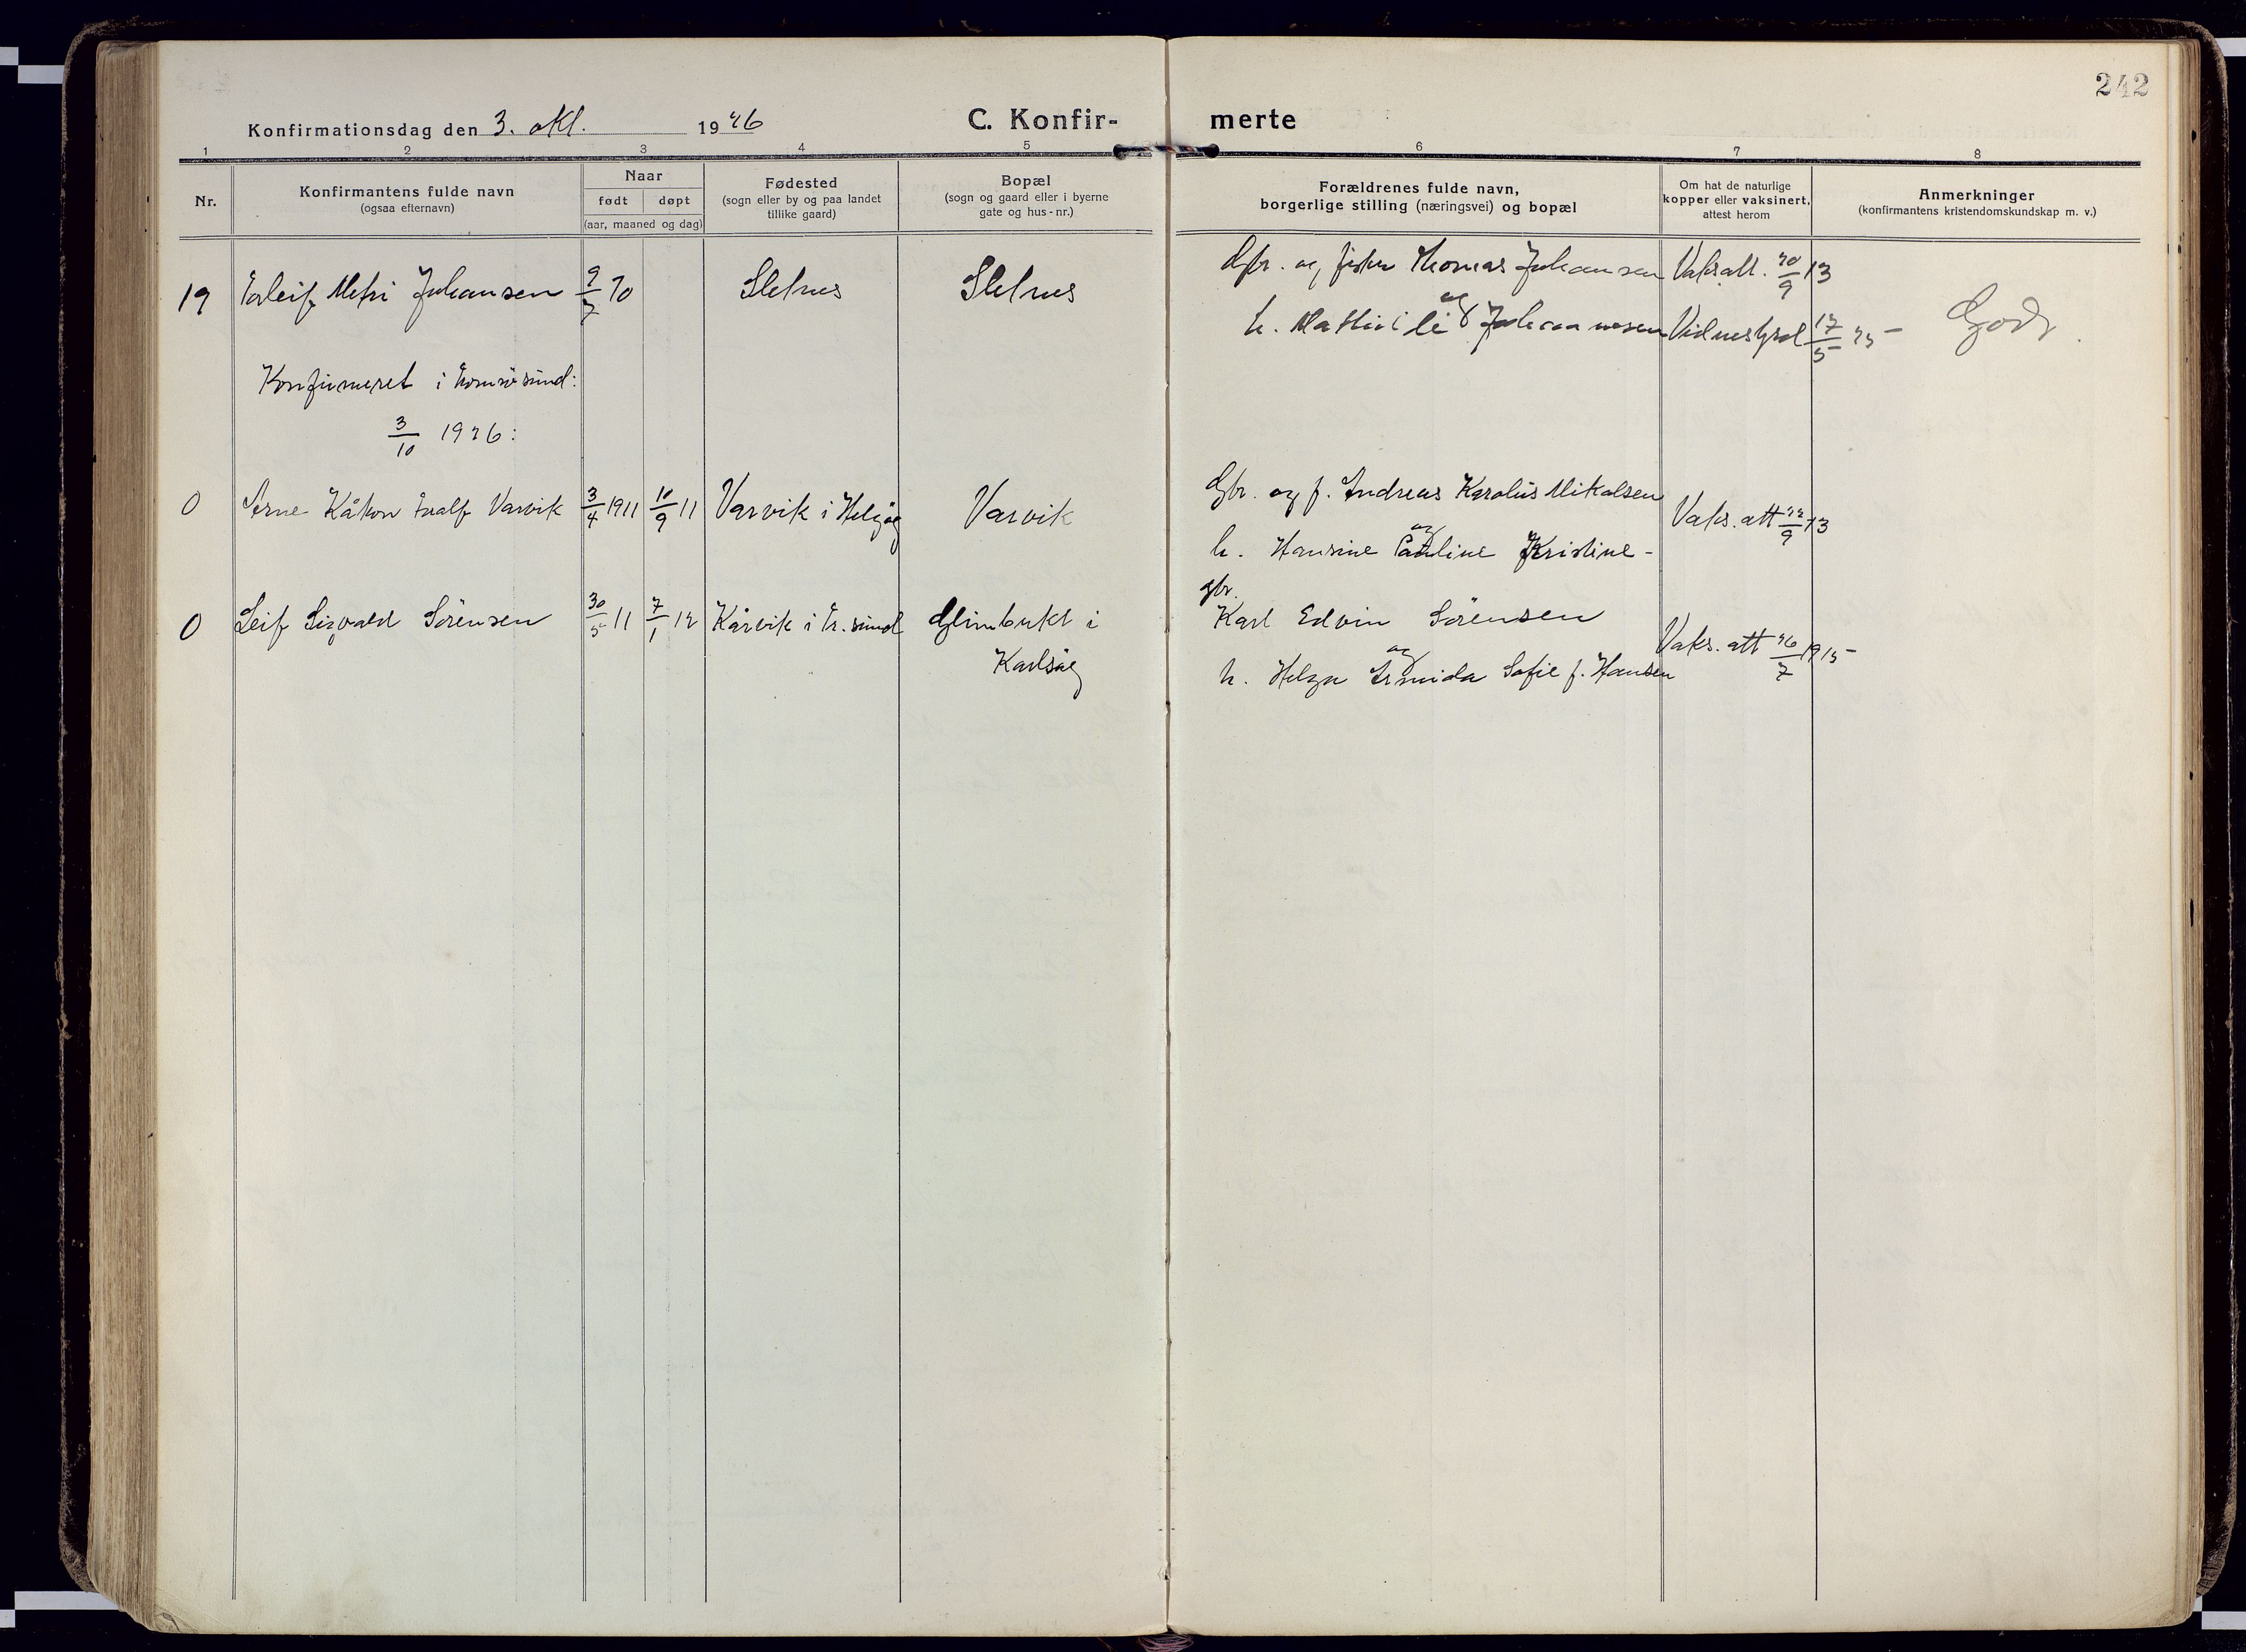 242
Konfirmationsdag den 3. okt. 1926
C. Konfir- merte
1 2 3 4 5 6 7 8
Nr.
Konfirmantens fulde navn
(ogsaa efternavn)
Naar
født døpt
(aar, maaned og dag)
Fødested
(sogn eller by og paa landet
tillike gaard)
Bopæl
(sogn og gaard eller i byerne
gate og hus-nr.)
Forældrenes fulde navn,
borgerlige stilling (næringsvei) og bopæl
Om hat de naturlige
kopper eller vaksinert,
attest herom
Anmerkninger
(konfirmantens kristendomskundskap m. v.)
19 Johansen 9/7 10 Sletnes Sletnes Gbr. og fisker Thomas Johansen Vaks att. 20/9 13
og
h. Johannesen Vidnesbyrd 17/5 25 Godt
Konfirmeret i Tromsøsund:
3/10 1926:
0 Arne Håkon Varvik 3/4 1911 10/9 11 Varvik i Helgøy Varvik Gbr. og f. Andreas Karolus Mikalsen Vaks. att 22/9 13
og
h. Hansine Pauline Kristine -
0 Leif Sigvald Sørensen 30/5 11 7/1 12 Kårvik i Tr.sund Glimbukt i
Karlsøy
gbr.
Karl Edvin Sørensen Vaks. att 26/7 1915
og
h. Helga Armida Sofie f. Hansen